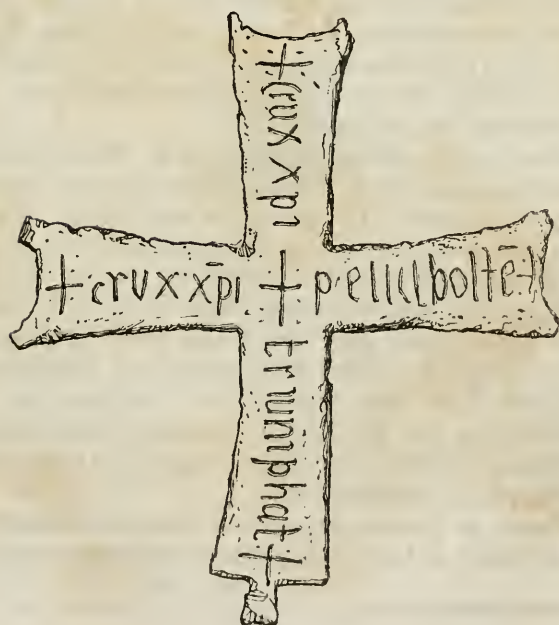 + crux xpi + triumphat +
+ crux x̄pi + pellit hostē +